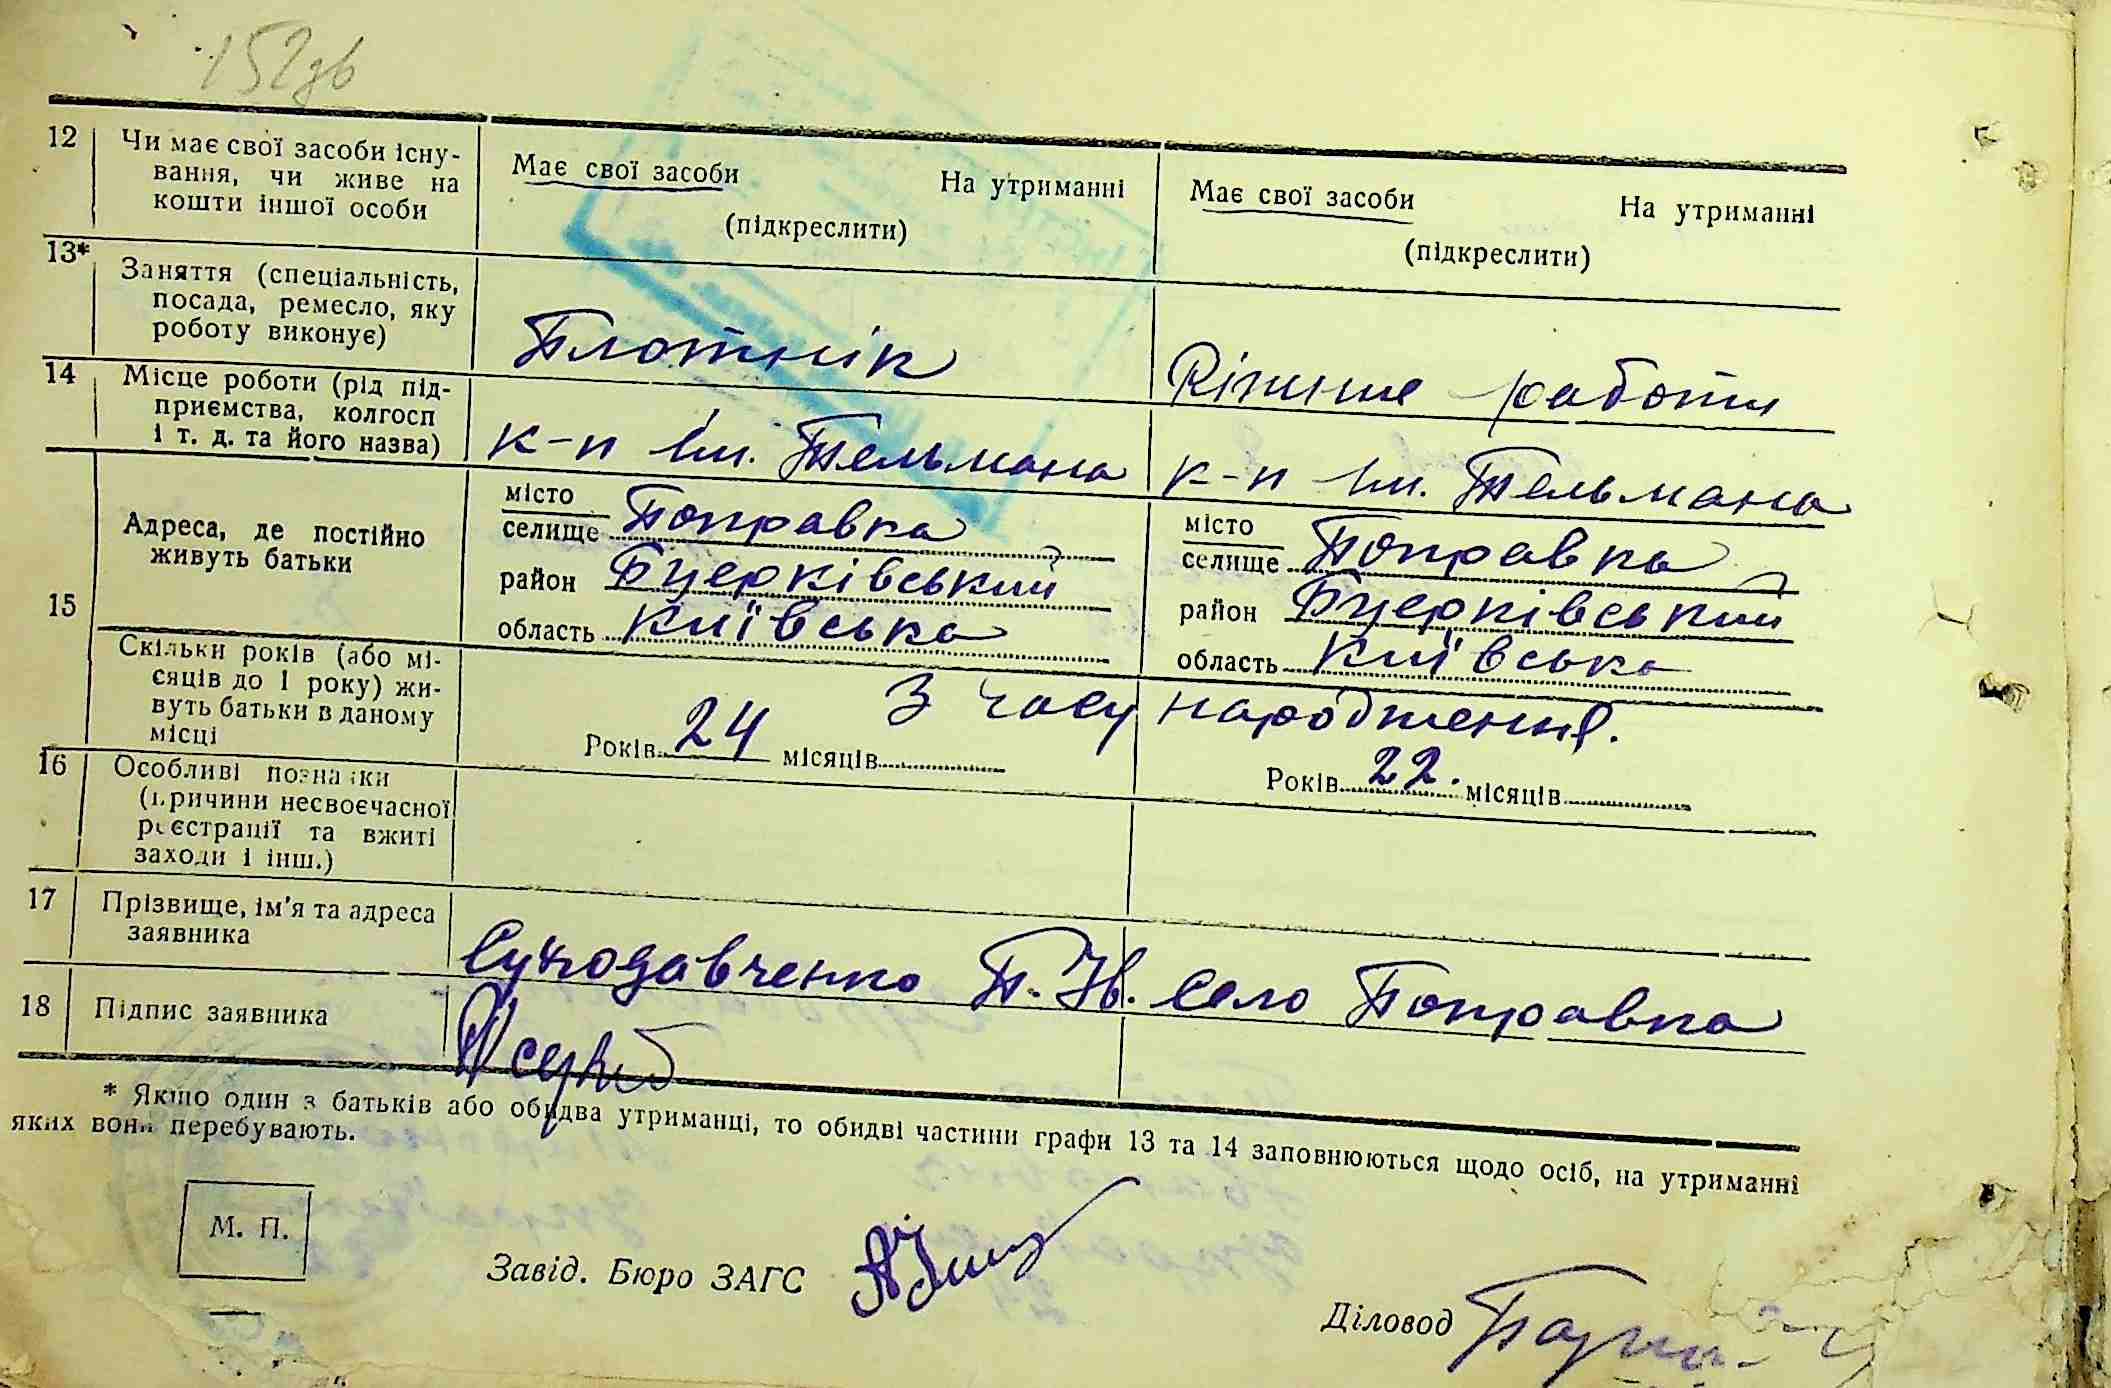 152зв
12 Чи має свої засоби існу-
вання, чи живе на
кошти іншої особи
Має свої засоби На утриманні
(підкреслити)
Має свої засоби На утриманні
(підкреслити)
13* Заняття (спеціальність,
посада, ремесло, яку
роботу виконує)
Плотнік
Ріжние работи
14 Місце роботи (рід під-
приємства, колгосп
і т. д. та його назва)
к-п ім. Тельмана
к-п ім. Тельмана
15 Адреса, де постійно
живуть батьки
місто
селище Поправка
район Бцерківський
область Київська
місто
селище Поправка
район Бцерківський
область Київська
Скільки років (або мі-
сяців до 1 року) жи-
вуть батьки в даному
місці
З часу народження.
Років 24 місяців
Років 22. місяців
16 Особливі познаки
(причини несвоєчасної
реєстрації та вжиті
заходи і інш.)
17 Прізвище, ім'я та адреса
заявника
П. Ив. село Поправка
18 Підпис заявника
* Якщо один з батьків або обидва утриманці, то обидві частини графи 13 та 14 заповнюються щодо осіб, на утриманні
яких вони перебувають.
М. П.
Завід. Бюро ЗАГС
Діловод